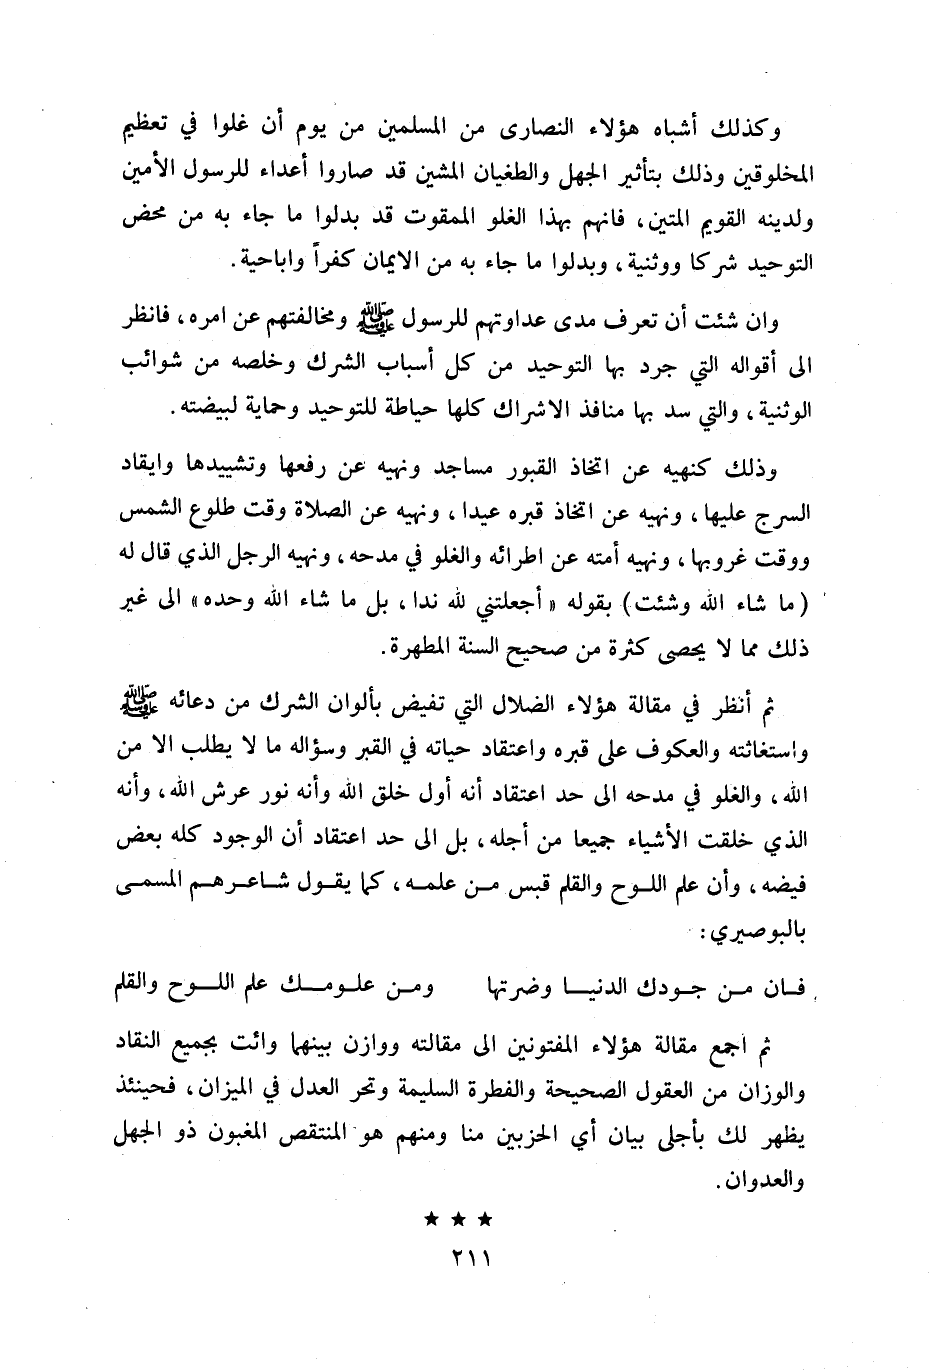 وكذلك أشباه هؤلاء النصارى من المسلمين من يوم أن غلوا في تعظيم
المخلوقين وذلك بتأثير الجهل والطغيان المشين قد صاروا أعداء للرسول الأمين
ولدينه القويم المتين، فانهم بهذا الغلو الممقوت قد بدلوا ما جاء به من محض
التوحيد شركا ووثنية، وبدلوا ما جاء به من الايمان كفراً واباحية.
وان شئت أن تعرف مدى عداوتهم للرسول ﷺ ومخالفتهم عن امره، فانظر
الى أقواله التي جرد بها التوحيد من كل أسباب الشرك وخلصه من شوائب
الوثنية، والتي سد بها منافذ الاشراك كلها حياطة للتوحيد وحماية لبيضته.
وذلك كنهيه عن اتخاذ القبور مساجد ونهيه عن رفعها وتشييدها وايقاد
السرج عليها، ونهيه عن اتخاذ قبره عيدا، ونهيه عن الصلاة وقت طلوع الشمس
ووقت غروبها، ونهيه أمته عن اطرائه والغلو في مدحه، ونهيه الرجل الذي قال له
(ما شاء الله وشئت) بقوله «أجعلتني لله ندا، بل ما شاء الله وحده» الى غير
ذلك مما لا يحصى كثرة من صحيح السنة المطهرة.
ثم أنظر في مقالة هؤلاء الضلال التي تفيض بألوان الشرك من دعائه ﷺ
واستغاثته والعكوف على قبره واعتقاد حياته في القبر وسؤاله ما لا يطلب الا من
الله، والغلو في مدحه الى حد اعتقاد أنه أول خلق الله وأنه نور عرش الله، وأنه
الذي خلقت الأشياء جميعا من أجله، بل الى حد اعتقاد أن الوجود كله بعض
فيضه، وأن علم اللوح والقلم قبس من علمه، كما يقول شاعرهم المسمى
بالبوصيري:
فان من جودك الدنيا وضرتها ومن علومك علم اللوح والقلم
ثم اجمع مقالة هؤلاء المفتونين الى مقالته ووازن بينهما وائت بجميع النقاد
والوزان من العقول الصحيحة والفطرة السليمة وتحر العدل في الميزان، فحينئذ
يظهر لك بأجلى بيان أي الحزبين منا ومنهم هو المنتقص المغبون ذو الجهل
والعدوان.
★ ★ ★
٢١١